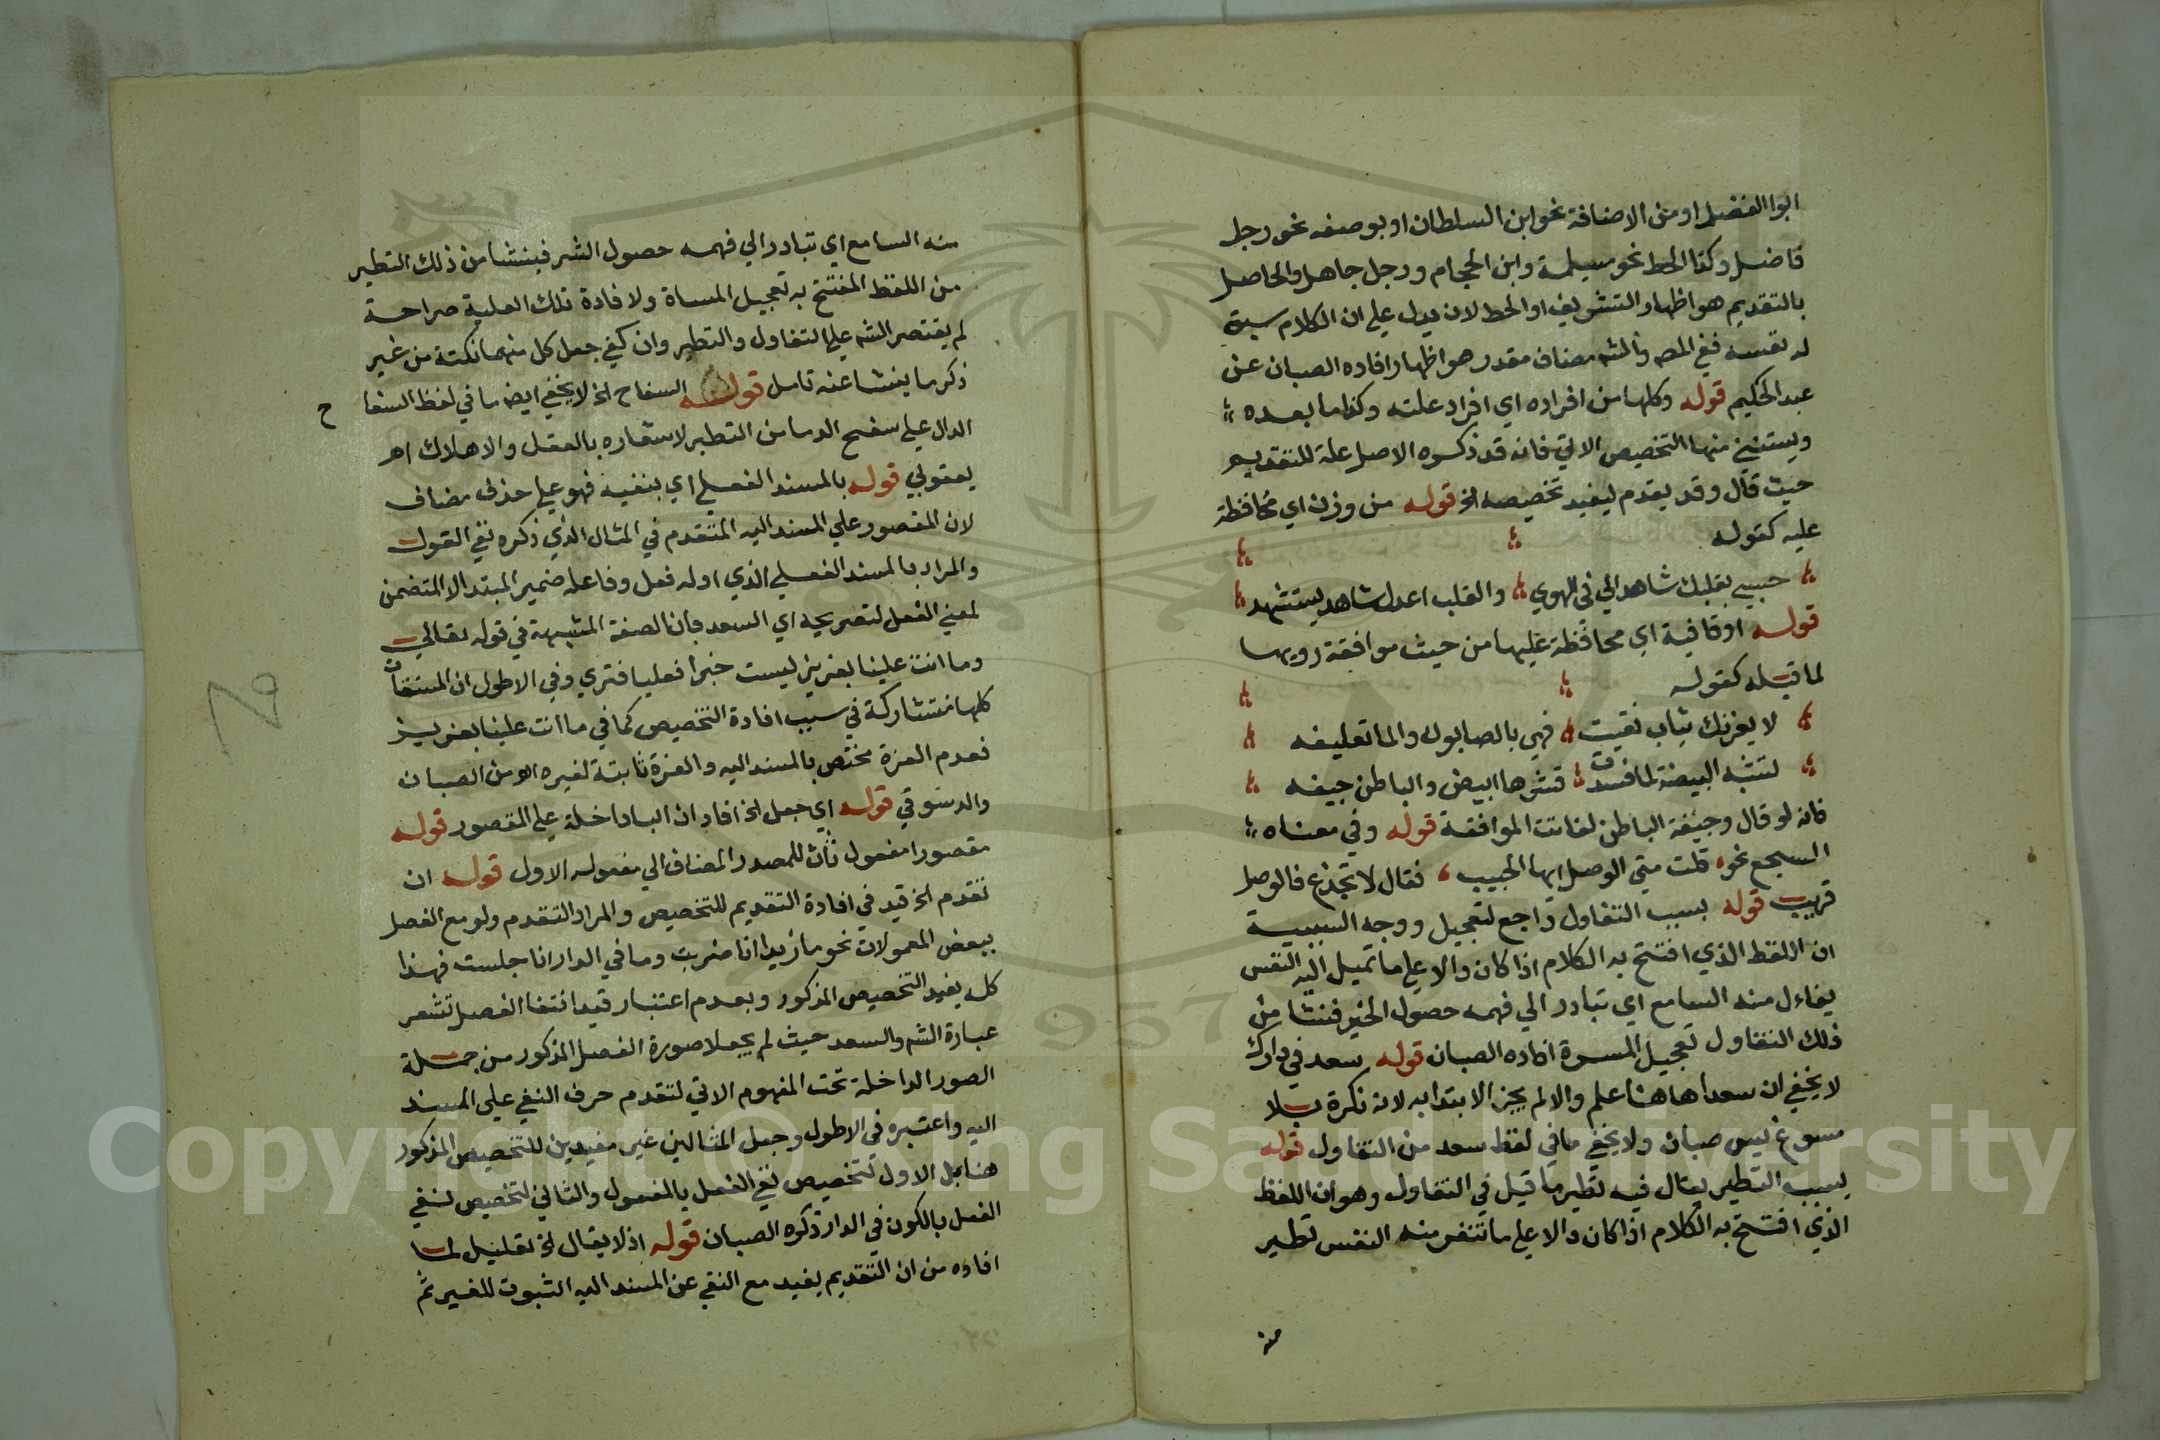 ابوا الفضل او من الاضافة نحو ابن السلطان او بوصفه نحو رجل
فاضل وكذا الحط نحو مسيلمة وابن الحجام ورجل جاهل والحاصل
بالتقديم هو اظهار التشريف او الحط لان يدل علي ان الكلام سيق
له نفسه ففي المص والشه مضاف مقدر هو اظهار افاده الصبان عن
عبد الحكيم قوله وكلها من افراده اي افراد علته وكذا ما بعده
ويستثني منها التخصيص الاتي فانه قد ذكره الاصل علة للتقديم
حيث قال وقد يقدم ليفيد تخصيصه الخ قوله من وزن اي محافظة
عليه كقوله
حبيبي بقلبك شاهد الي في الهوي والقلب اعدل شاهد يستشهد
قوله او قافية اي محافظة عليها من حيث موافقة رويها
لما قبله كقوله
لا يغرنك ثياب نقيت فهي بالصابون والما تعليفه
لتشبه البيضة لما فسدت قشرها ابيض والباطن جيفه
فانه لو قال وجيفة الباطن لفاتت الموافقة قوله وفي معناه
السجع نحو قلت متي الوصل ايها الحبيب فقال لا تجزع فالوصل
قريب قوله بسبب التفاول راجع لتعجيل ووجه السببية
ان اللفظ الذي افتتح به الكلام اذا كان دالا علي ما تميل اليه النفس
يفاءل منه السامع اي تبادر الي فهمه حصول الخير فنشا من
ذلك التفاول تعجيل المسرة افاده الصبان قوله سعد في دارك
لا يخفي ان سعدا هاهنا علم والا لم يجز الابتدا به لانه نكرة بلا
مسوغ يس صبان ولا يخفي ما في لفظ سعد من التفاول قوله
بسبب التطير يقال فيه نظير ما قيل في التفاول وهو ان اللفظ
الذي افتتح به الكلام اذا كان دالا علي ما تنفر منه النفس تطير
منه
منه السامع اي تبادر الي فهمه حصول الشر فينشا من ذلك التطير
من اللفظ المفتتح به تعجيل المساة ولافادة تلك العلية صراحة
لم يقتصر الشه علي التفاول والتطير وان كفي جعل كل منهما نكتة من غير
ذكر ما ينشا عنه تامل قوله السفاح الخ لا يخفي ايضا ما في لفظ السفا
ح
الدال علي سفح الدما من التطير لاشعاره بالعقل والاهلاك اهـ
يعقوبي قوله بالمسند الفعلي اي بنفيه فهو علي حذف مضاف
لان المقصور علي المسند اليه المتقدم في المثال الذي ذكره نفي القول
والمراد بالمسند الفعلي الذي اوله فعل وفاعله ضمير المبتدا لا المتضمن
لمعني الفعل لتصريحه اي السعد بان الصفة المشبهة في قوله تعالي
وما انت علينا بعزيز ليست خبرا فعليا فتري وفي الاطول ان المشتقات
كلها متشاركة في سبب افادة التخصيص كما في ما انت علينا بعزيز
فعدم العزة مختص بالمسند اليه والعزة ثابتة لغيره اهـ من الصبان
والدسوقي قوله اي جعل الخ افاد ان البا داخلة علي المقصور قوله
مقصورا مفعول ثان للمصدر المضاف الي مفعوله الاول قوله ان
تقدم الخ قيد في افادة التقديم للتخصيص والمراد التقدم ولو مع الفصل
ببعض المعمولات نحو ما زيدا انا ضربت وما في الدار انا جلست فهذا
كله يفيد التخصيص المذكور وبعدم اعتبار قيد انتفا الفصل تشعر
عبارة الشه والسعد حيث لم يجعلا صورة الفصل المذكور من جملة
الصور الداخلة تحت المفهوم الاتي لتقدم حرف النفي علي المسند
اليه واعتبره في الاطول وجعل المثالين غير مفيدين للتخصيص المذكور
هنا بل الاول لتخصيص نفي الفعل بالمفعول والثاني لتخصيص نفي
الفعل بالكون في الدار ذكره الصبان قوله اذ لا يقال الخ تعليل لما
افاده من ان التقديم يفيد مع النفي عن المسند اليه الثبوت للغير ثم
1957
Copyright © King Saud University